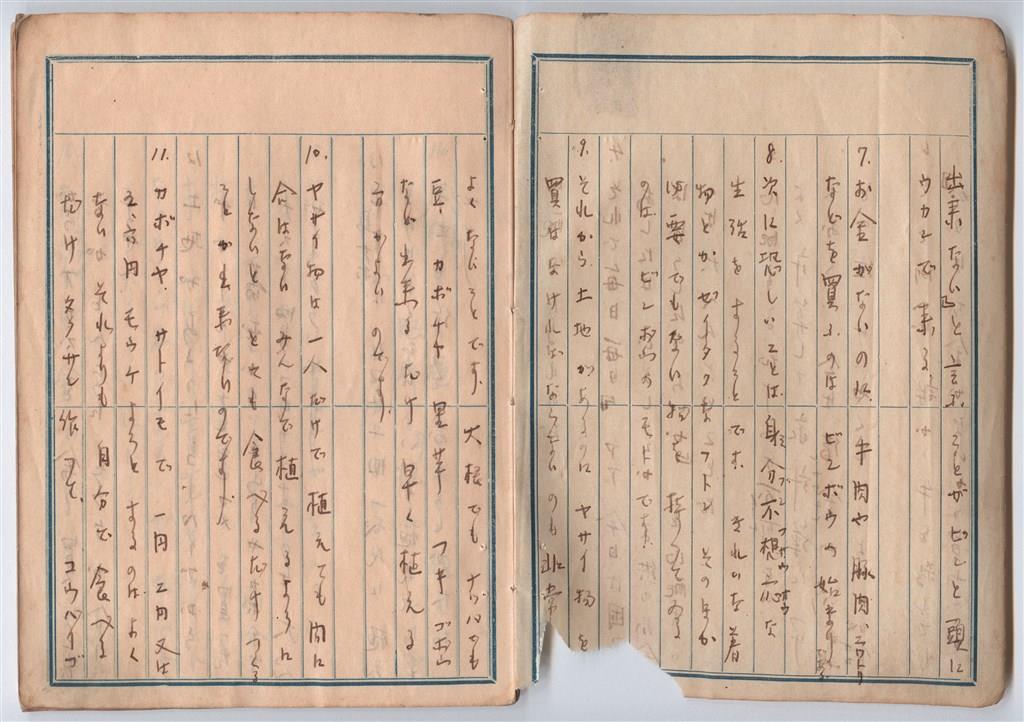 出来ない」と言ふことがピンと頭に
ウカンで来る。
7. お金がないのに牛肉や豚肉、ニワトリ
などを買ふのはビンボウの始まり
8. 次に恐しいことは身分不相応な
生活をすることです きれいな着
物とかゼイタクなフトン そのほか
必要でもない物を 持つてゐる
のはビンボウのモトです。
9. それから土地があるのに ヤサイ物を
買はなければならないのも 非常
よくないことです。 大根でも
豆、カボチヤ 里芋 フキ ゴボウ
など出来るだけ早く植える
方がよいのです。
10. ヤサイ物は一人だけで植えても間に
合はない みんなで植えるように
しないと とても食べるだけつくる
ことが出来ないのです。
11. カボチヤ、サトイモで 一円 二円又は
五、六円 モウケようとするのは よく
ないが それよりも 自分で食べる
だけ タクサン作つて、